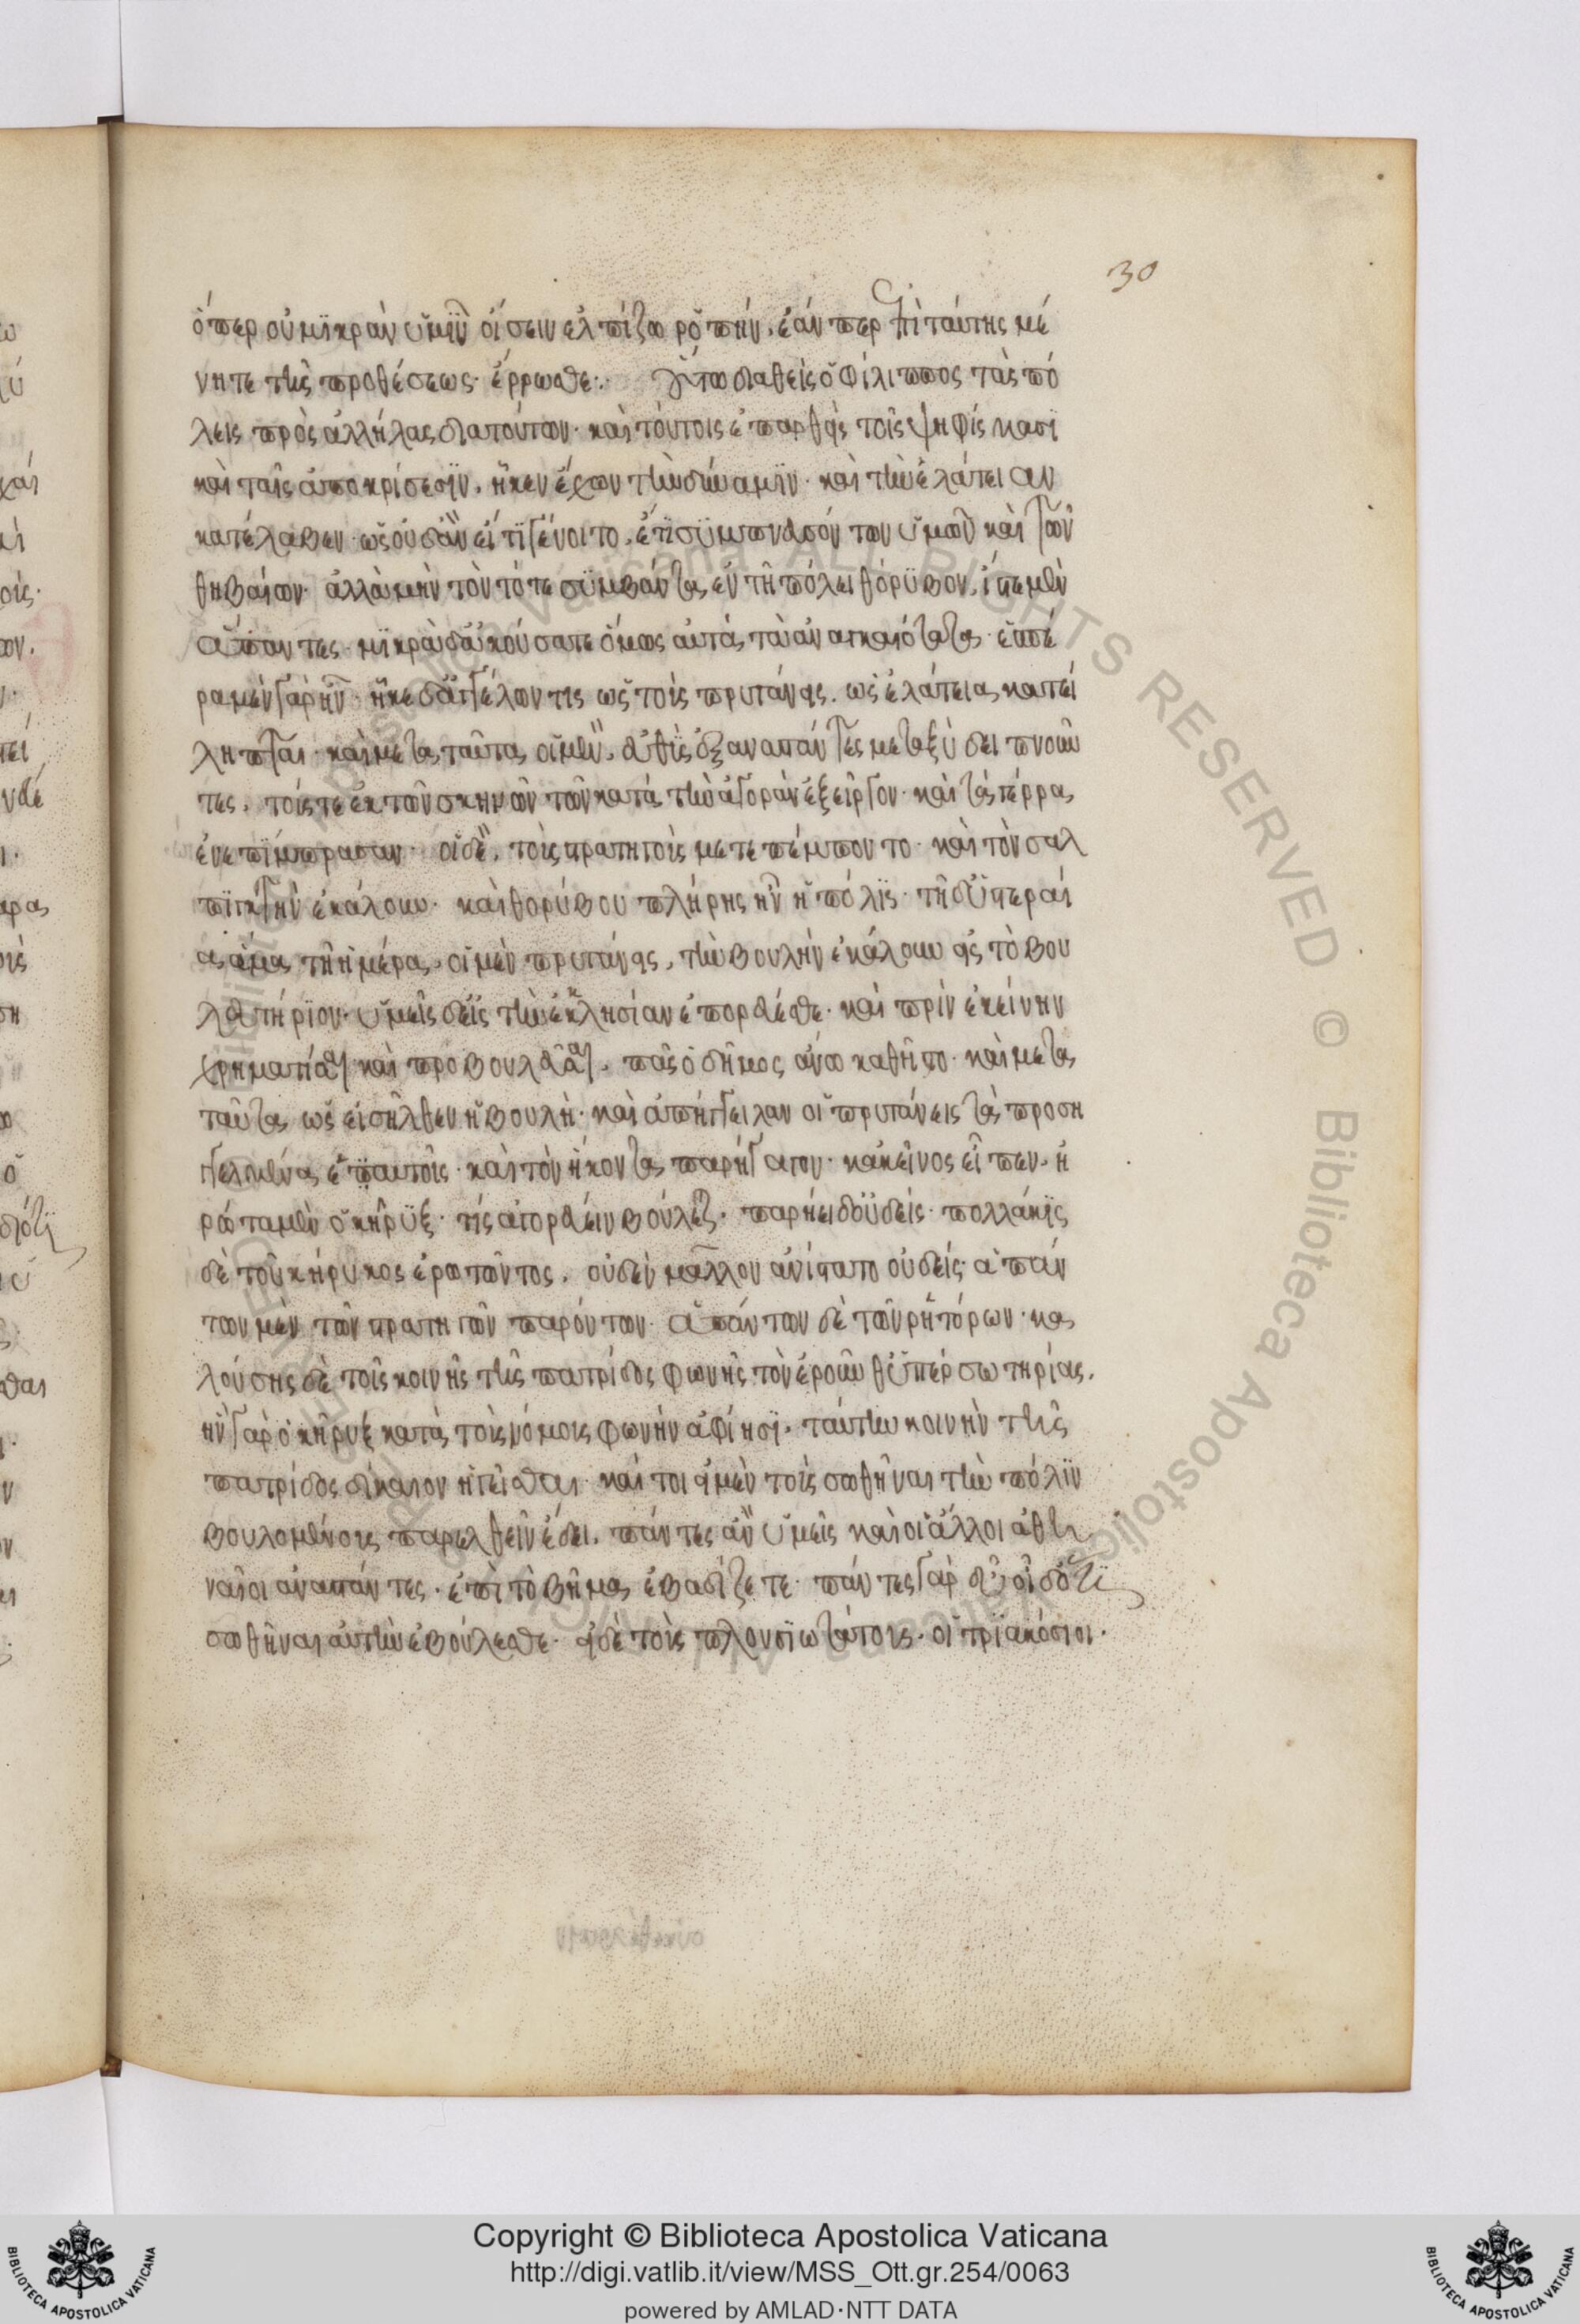 30
ὅπερ οὐ μικρὰν ὑμῖν οἴσειν ἐλπίζω ῥοπήν. ἐάν περ ἐπὶ ταύτης μέ
νητε τῆς προθέσεως· ἔρρωσθε:· οὕτω διαθεὶς ὁ φίλιππος τὰς πό
λεις πρὸς ἀλλήλας διὰ τούτων· καὶ τούτοις ἐπαρθεὶς τοῖς ψηφίσμασι
καὶ ταῖς ἀποκρίσεσιν, ἧκεν ἔχων τὴν δύναμιν· καὶ τὴν ἐλάτειαν
κατέλαβεν· ὡς οὐδ' ἂν εἴ τι γένοιτο, ἔτι συμπνευσόντων ὑμῶν καὶ τῶν
θηβαίων· ἀλλὰ μὴν τὸν τότε συμβάντα ἐν τῇ πόλει θόρυβον, ἴστε μὲν
ἅπαντες· μικρὰ δ' ἀκούσατε ὅμως αὐτὰ τὰ ἀναγκαιότατα· ἑσπέ
ρα μὲν γὰρ ἦν· ἧκε δ' ἀγγέλων τις ὡς τοὺς πρυτάνεις. ὡς ἐλάτεια κατεί
ληπται· καὶ μετὰ ταῦτα οἱ μὲν, εὐθὺς ἐξαναστάντες μεταξὺ δειπνοῦν
τες, τούς τε ἐκ τῶν σκηνῶν τῶν κατὰ τὴν ἀγορὰν ἐξεῖργον· καὶ τὰ γέρρα
ἐνεπίμπρασαν· οἱ δὲ, τοὺς στρατηγοὺς μετεπέμποντο· καὶ τὸν σαλ
πιγκτὴν ἐκάλουν· καὶ θορύβου πλήρης ἦν ἡ πόλις· τῇ δ' ὑστεραί
α ἅμα τῇ ἡμέρα, οἱ μὲν πρυτάνεις, τὴν βουλὴν ἐκάλουν εἰς τὸ βου
λευτήριον· ὑμεῖς δ' εἰς τὴν ἐκκλησίαν ἐπορεύεσθε· καὶ πρὶν ἐκείνην
χρηματίσαι καὶ προβουλεῦσαι, πᾶς ὁ δῆμος ἄνω καθῆστο· καὶ μετὰ
ταῦτα ὡς εἰσῆλθεν ἡ βουλὴ· καὶ ἀπήγγειλαν οἱ πρυτάνεις τὰ προση
γγελμένα ἑαυτοῖς· καὶ τὸν ἥκοντα παρήγαγον· κἀκεῖνος εἶπεν, ἠ
ρώτα μὲν ὁ κῆρυξ· τίς ἀγορεύειν βούλεται· παρῄει δ' οὐδείς· πολλάκις
δὲ τοῦ κήρυκος ἐρωτῶντος, οὐδὲν μᾶλλον ἀνίστατο οὐδείς· ἁπάν
των μὲν τῶν στρατηγῶν παρόντων· ἁπάντων δὲ τῶν ῥητόρων· κα
λούσης δὲ τοῖς κοινῆς τῆς πατρίδος φωνῆς τὸν ἐροῦνθ' ὑπὲρ σωτηρίας.
ἣν γὰρ ὁ κῆρυξ κατὰ τοὺς νόμους φωνὴν ἀφίησι, ταύτην κοινὴν τῆς
πατρίδος δίκαιον ἡγεῖσθαι· καίτοι εἰ μὲν τοὺς σωθῆναι τὴν πόλιν
βουλομένους παρελθεῖν ἔδει, πάντες ἂν ὑμεῖς καὶ οἱ ἄλλοι ἀθη
ναῖοι ἀναστάντες, ἐπὶ τὸ βῆμα ἐβαδίζετε· πάντες γὰρ εὖ οἶδ' ὅτι
σωθῆναι αὐτὴν ἐβούλεσθε· εἰ δὲ τοὺς πλουσιωτάτους, οἱ τριακόσιοι·
Copyright © Biblioteca Apostolica Vaticana
http://digi.vatlib.it/view/MSS_Ott.gr.254/0063
powered by AMLAD·NTT DATA